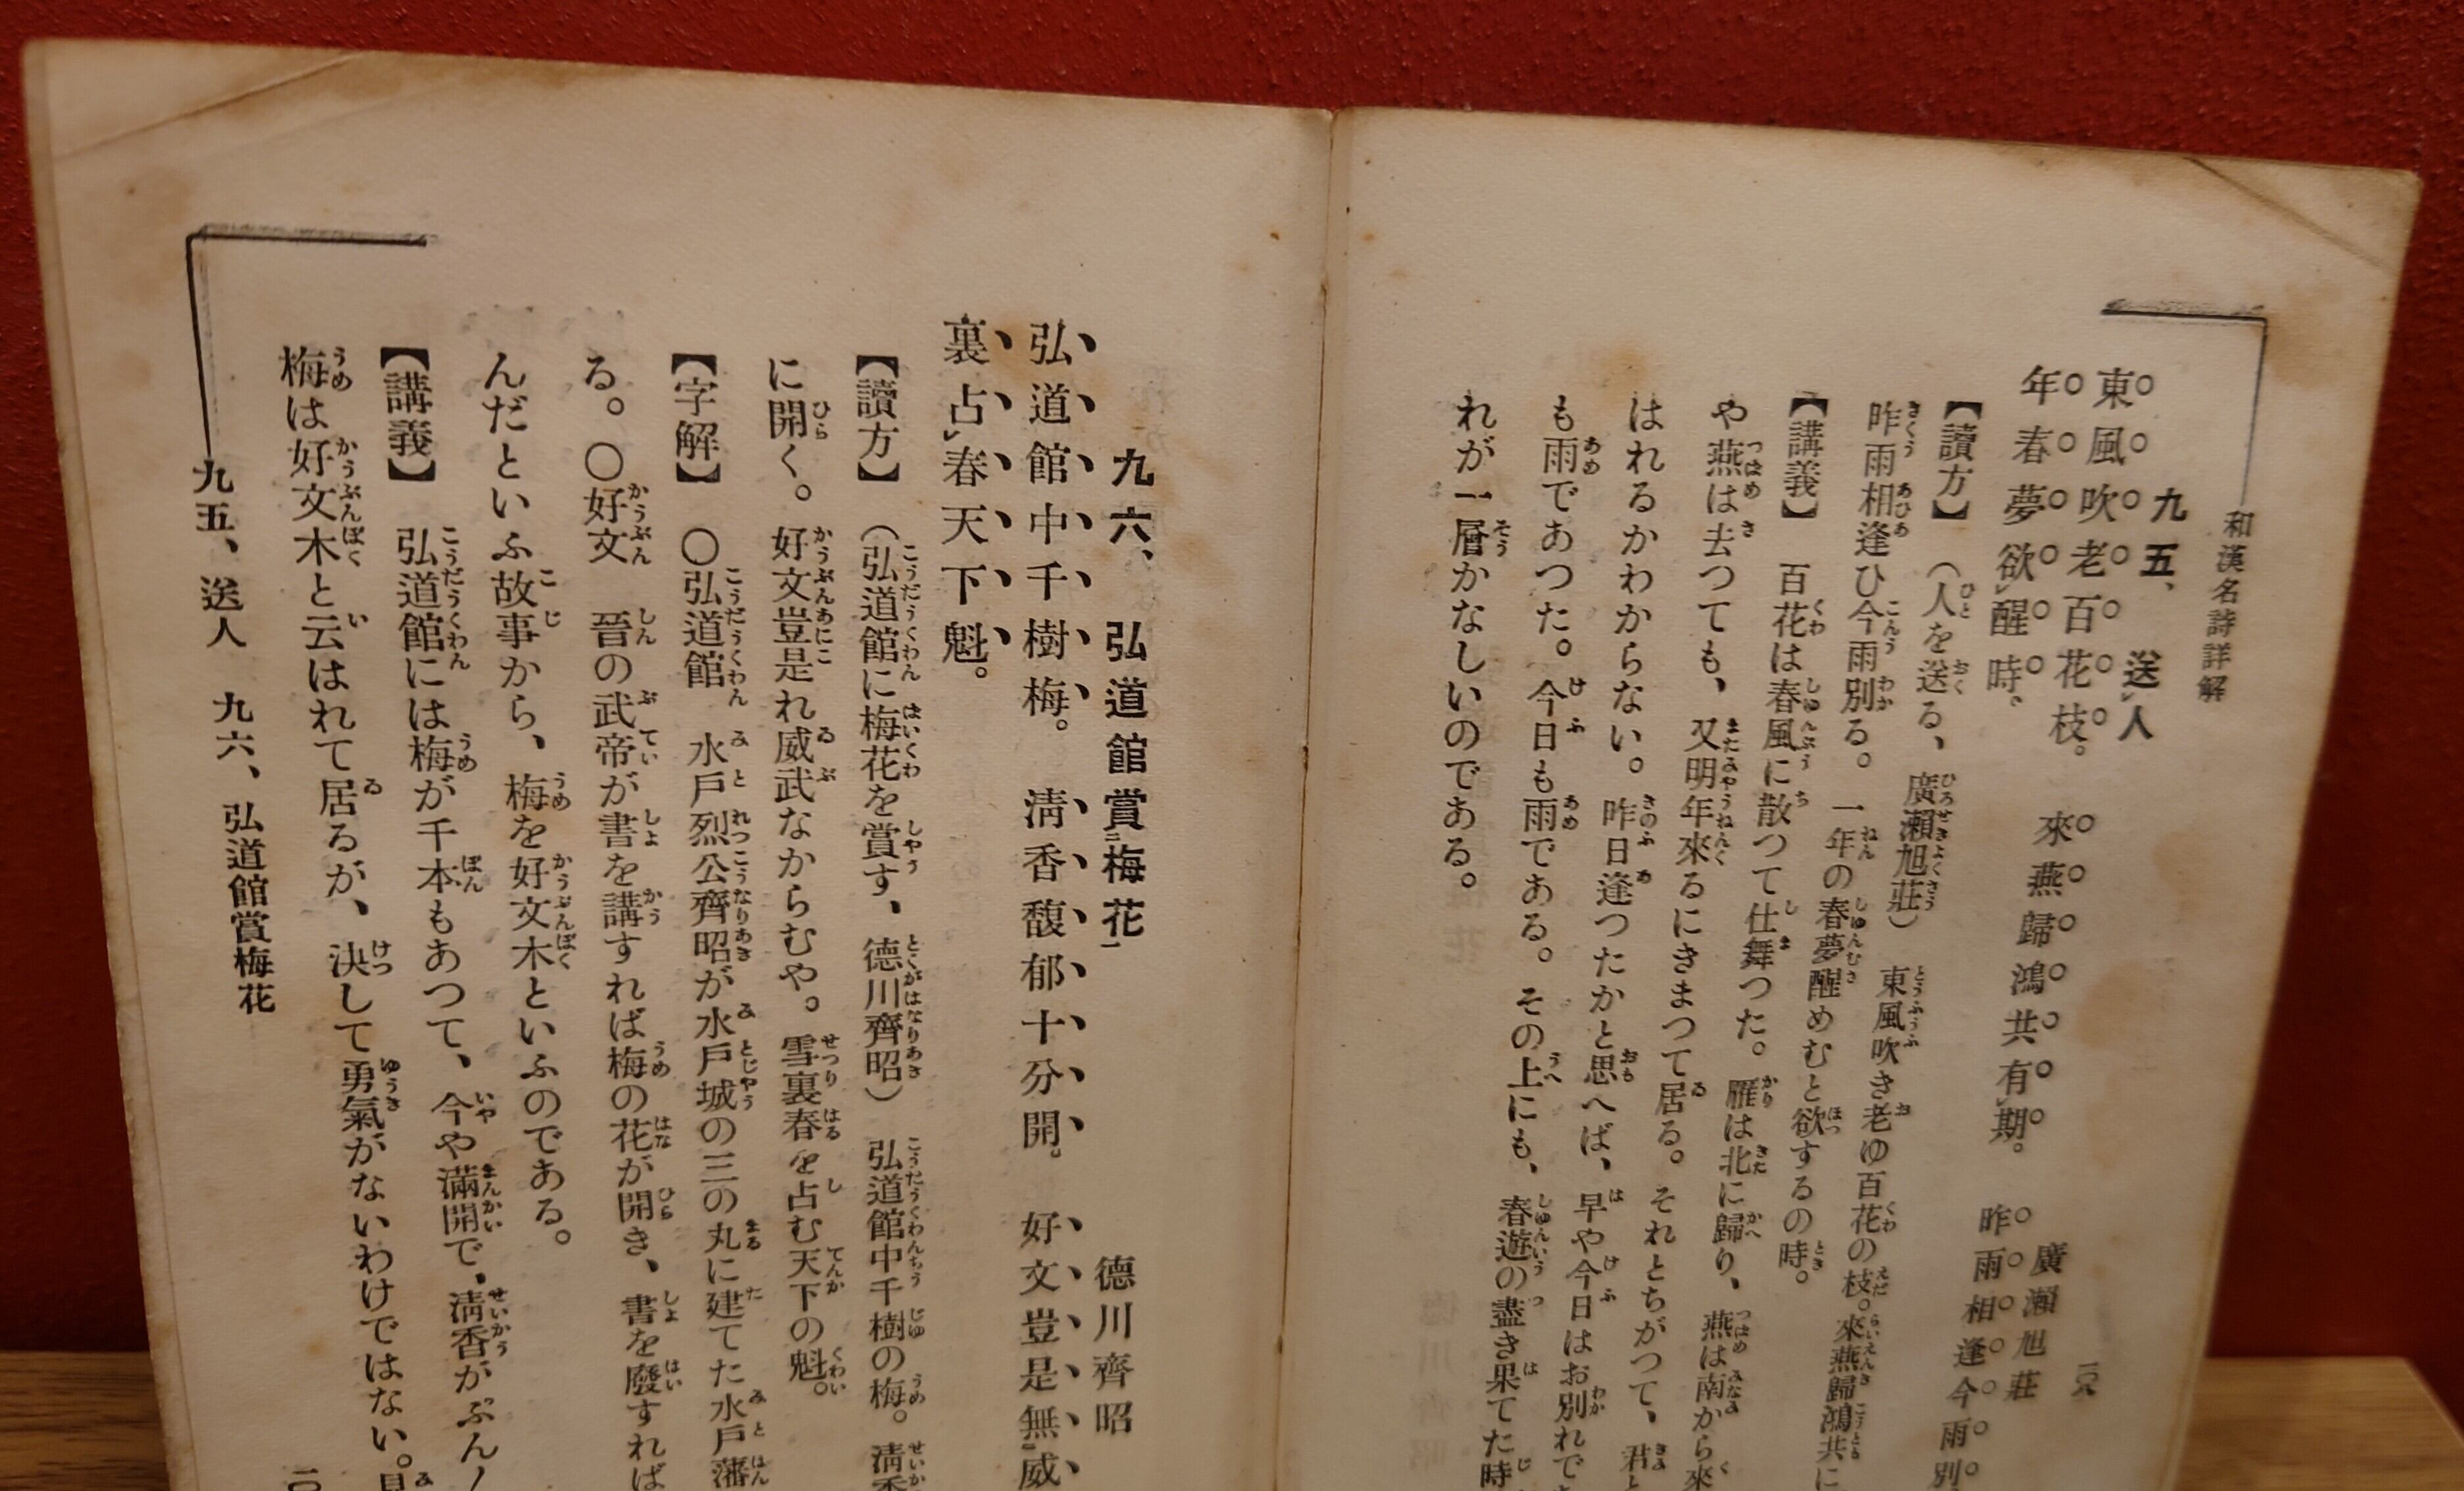 和漢名詩詳解
一〇八
九五、送人
廣瀨旭莊
東風吹老百花枝。來燕歸鴻共有期。昨雨相逢今雨別
年春夢欲醒時。
【讀方】（人を送る、廣瀨旭莊）東風吹き老ゆ百花の枝。來燕歸鴻共に
昨雨相逢ひ今雨別る。一年の春夢醒めむと欲するの時。
【講義】百花は春風に散つて仕舞つた。雁は北に歸り、燕は南から來
や燕は去つても、又明年來るにきまつて居る。それとちがつて、君と
はれるかわからない。昨日逢つたかと思へば、早や今日はお別れで
も雨であつた。今日も雨である。その上にも、春遊の盡き果てた時
れが一層かなしいのである。
九六、弘道館賞梅花
德川齊昭
弘道館中千樹梅。淸香馥郁十分開。好文豈是無威
裏占春天下魁。
【讀方】（弘道館に梅花を賞す、德川齊昭）弘道館中千樹の梅。淸香
に開く。好文豈是れ威武なからむや。雪裏春を占む天下の魁。
【字解】〇弘道館　水戶烈公齊昭が水戶城の三の丸に建てた水戶藩
る。〇好文　晉の武帝が書を講すれば梅の花が開き、書を廢すれば
んだといふ故事から、梅を好文木といふのである。
【講義】弘道館には梅が千本もあつて、今や滿開で、淸香がぷん〱
梅は好文木と云はれて居るが、決して勇氣がないわけではない。
九五、送人　九六、弘道館賞梅花